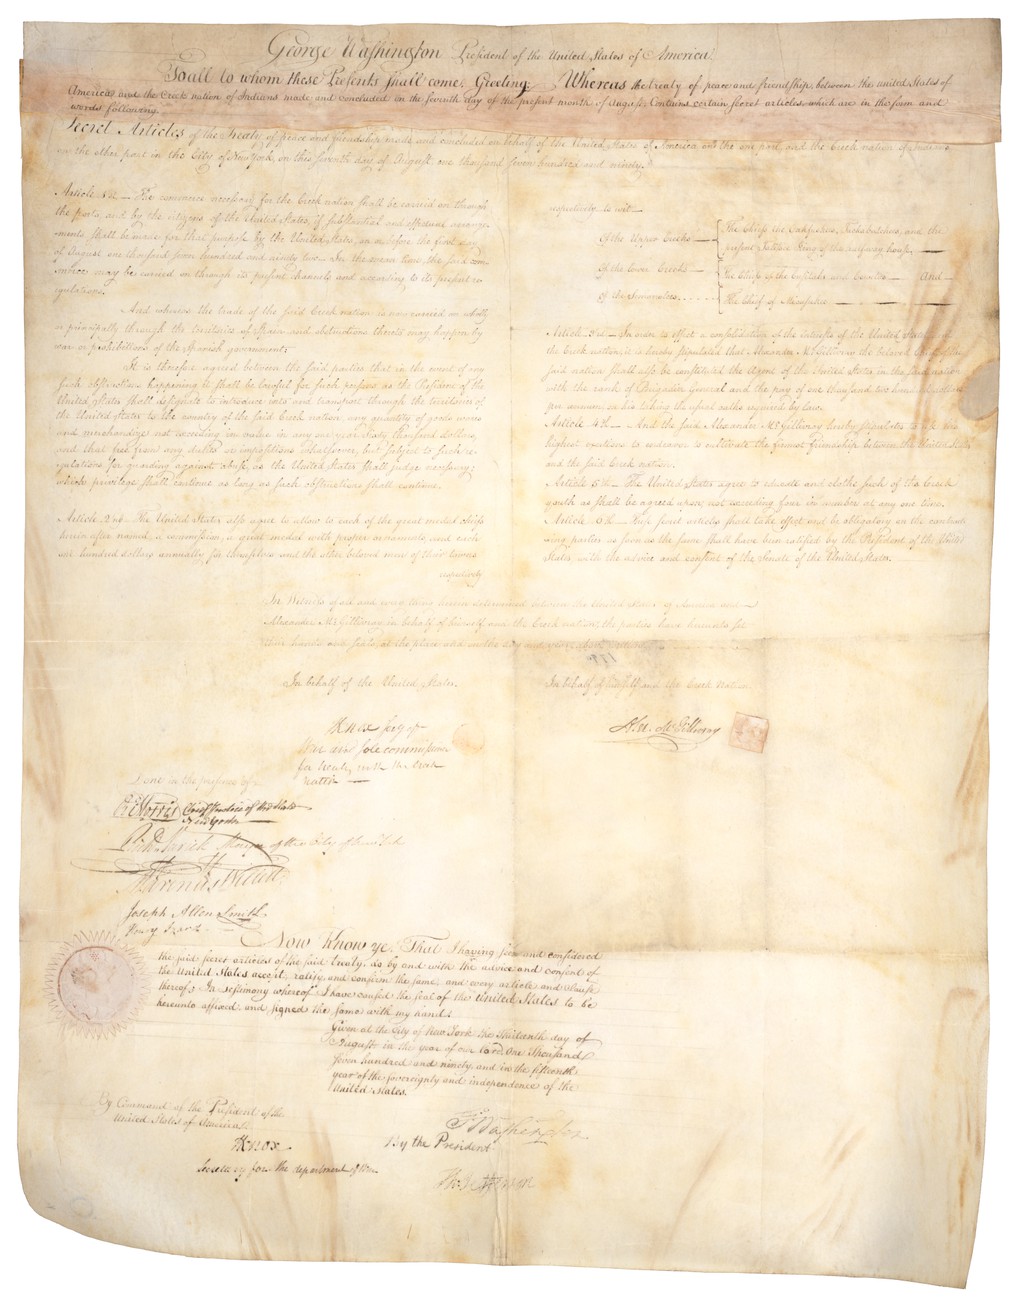 George Washington President of the United States of America.
To all to whom these Presents shall come, Greeting: Whereas the treaty of peace and friendship, between the united States of
America and the Creek nation of Indians made and concluded on the seventh day of the present month of August Contains certain secret articles which are in the form and
words following.
Secret Articles of the Treaty of peace and friendship made and concluded on behalf of the United States of America on the one part, and the Creek nation of Indians
on the other part in the City of New York, on this seventh day of August one thousand seven hundred and ninety.
Article 1st — The commerce necessary for the Creek nation shall be carried on through
the ports, and by the citizens of the United States, if substantial and effectual arrange-
ments shall be made for that purpose by the United States, on or before the first day
of August one thousand seven hundred and ninety two — In the mean time, the said com-
merce may be carried on through its present channels and according to its present re-
gulations.
And whereas the trade of the said Creek nation is now carried on wholly
or principally through the territories of Spain and obstructions thereto may happen by
war or prohibitions of the Spanish government;
It is therefore agreed between the said parties that in the event of any
such obstructions happening it shall be lawful for such persons as the President of the
United States shall designate to introduce into and transport through the territories of
the United States to the country of the said Creek nation, any quantity of goods wares
and merchandize not exceeding in value in any one year sixty thousand dollars,
and that free from any duties or impositions whatsoever, but subject to such re-
gulations for guarding against abuse, as the United States shall judge necessary;
which privilege shall continue as long as such obstructions shall continue.
Article 2nd — The United States also agree to allow to each of the great medal chiefs
herein after named, a commission, a great medal with proper ornaments, and each
one hundred dollars annually for themselves and the other beloved men of their towns
respectively
respectively to wit —
Of the Upper Creeks — The Chiefs of the Oakfuskies, Tuckabatchees, and the
present Tallisee King of the halfway house, —
Of the lower Creeks — The Chiefs of the Cusitahs and Cowetas — And —
Of the Semanolees The Chief of Micasukee —
Article 3rd — In order to effect a consolidation of the interests of the United States and
the Creek nation, it is hereby stipulated that Alexander McGillivray the beloved Chief of the
said nation shall also be constituted the Agent of the United States in the said nation
with the rank of Brigadier General and the pay of one thousand two hundred dollars
per annum, on his taking the usual oaths required by law.
Article 4th — And the said Alexander McGillivray hereby stipulates to use his
highest exertions to endeavor to cultivate the firmest friendship between the United States
and the said Creek nation.
Article 5th — The United States agree to educate and clothe such of the Creek
youth as shall be agreed upon, not exceeding four in number at any one time.
Article 6th — These secret articles shall take effect and be obligatory on the contract-
ing parties as soon as the same shall have been ratified by the President of the United
States with the advice and consent of the Senate of the United States.
In Witness of all and every thing herein determined between the United States of America and
Alexander McGillivray in behalf of himself and the Creek nation, the parties have hereunto set
their hands and seals, at the place and on the day and year above
1790
In behalf of the United States.
In behalf of himself and the Creek Nation
HKnox Secy of
War and sole commissioner
for treaty with the Creek
nation —
Alex. McGillivray
Done in the presence of
Richd. Morris Chief Justice of the State
New York —
Richd. Varick Mayor of the City of New York
Marinus Willett
Joseph Allen Smith
Now Know ye, That I having seen and considered
the said secret articles of the said treaty, do by and with the advice and consent of
the United States accept, ratify and confirm the same, and every article and clause
thereof; In testimony whereof I have caused the seal of the united States to be
hereunto affixed, and signed the same with my hand.
Given at the City of New York the Thirteenth day of
August in the year of our Lord One Thousand
seven hundred and ninety, and in the fifteenth
year of the sovereignty and independence of the
United States.
By Command of the President of the
United States of America.
HKnox
Secretary for the department of War
GWashington
By the President
Th: Jefferson